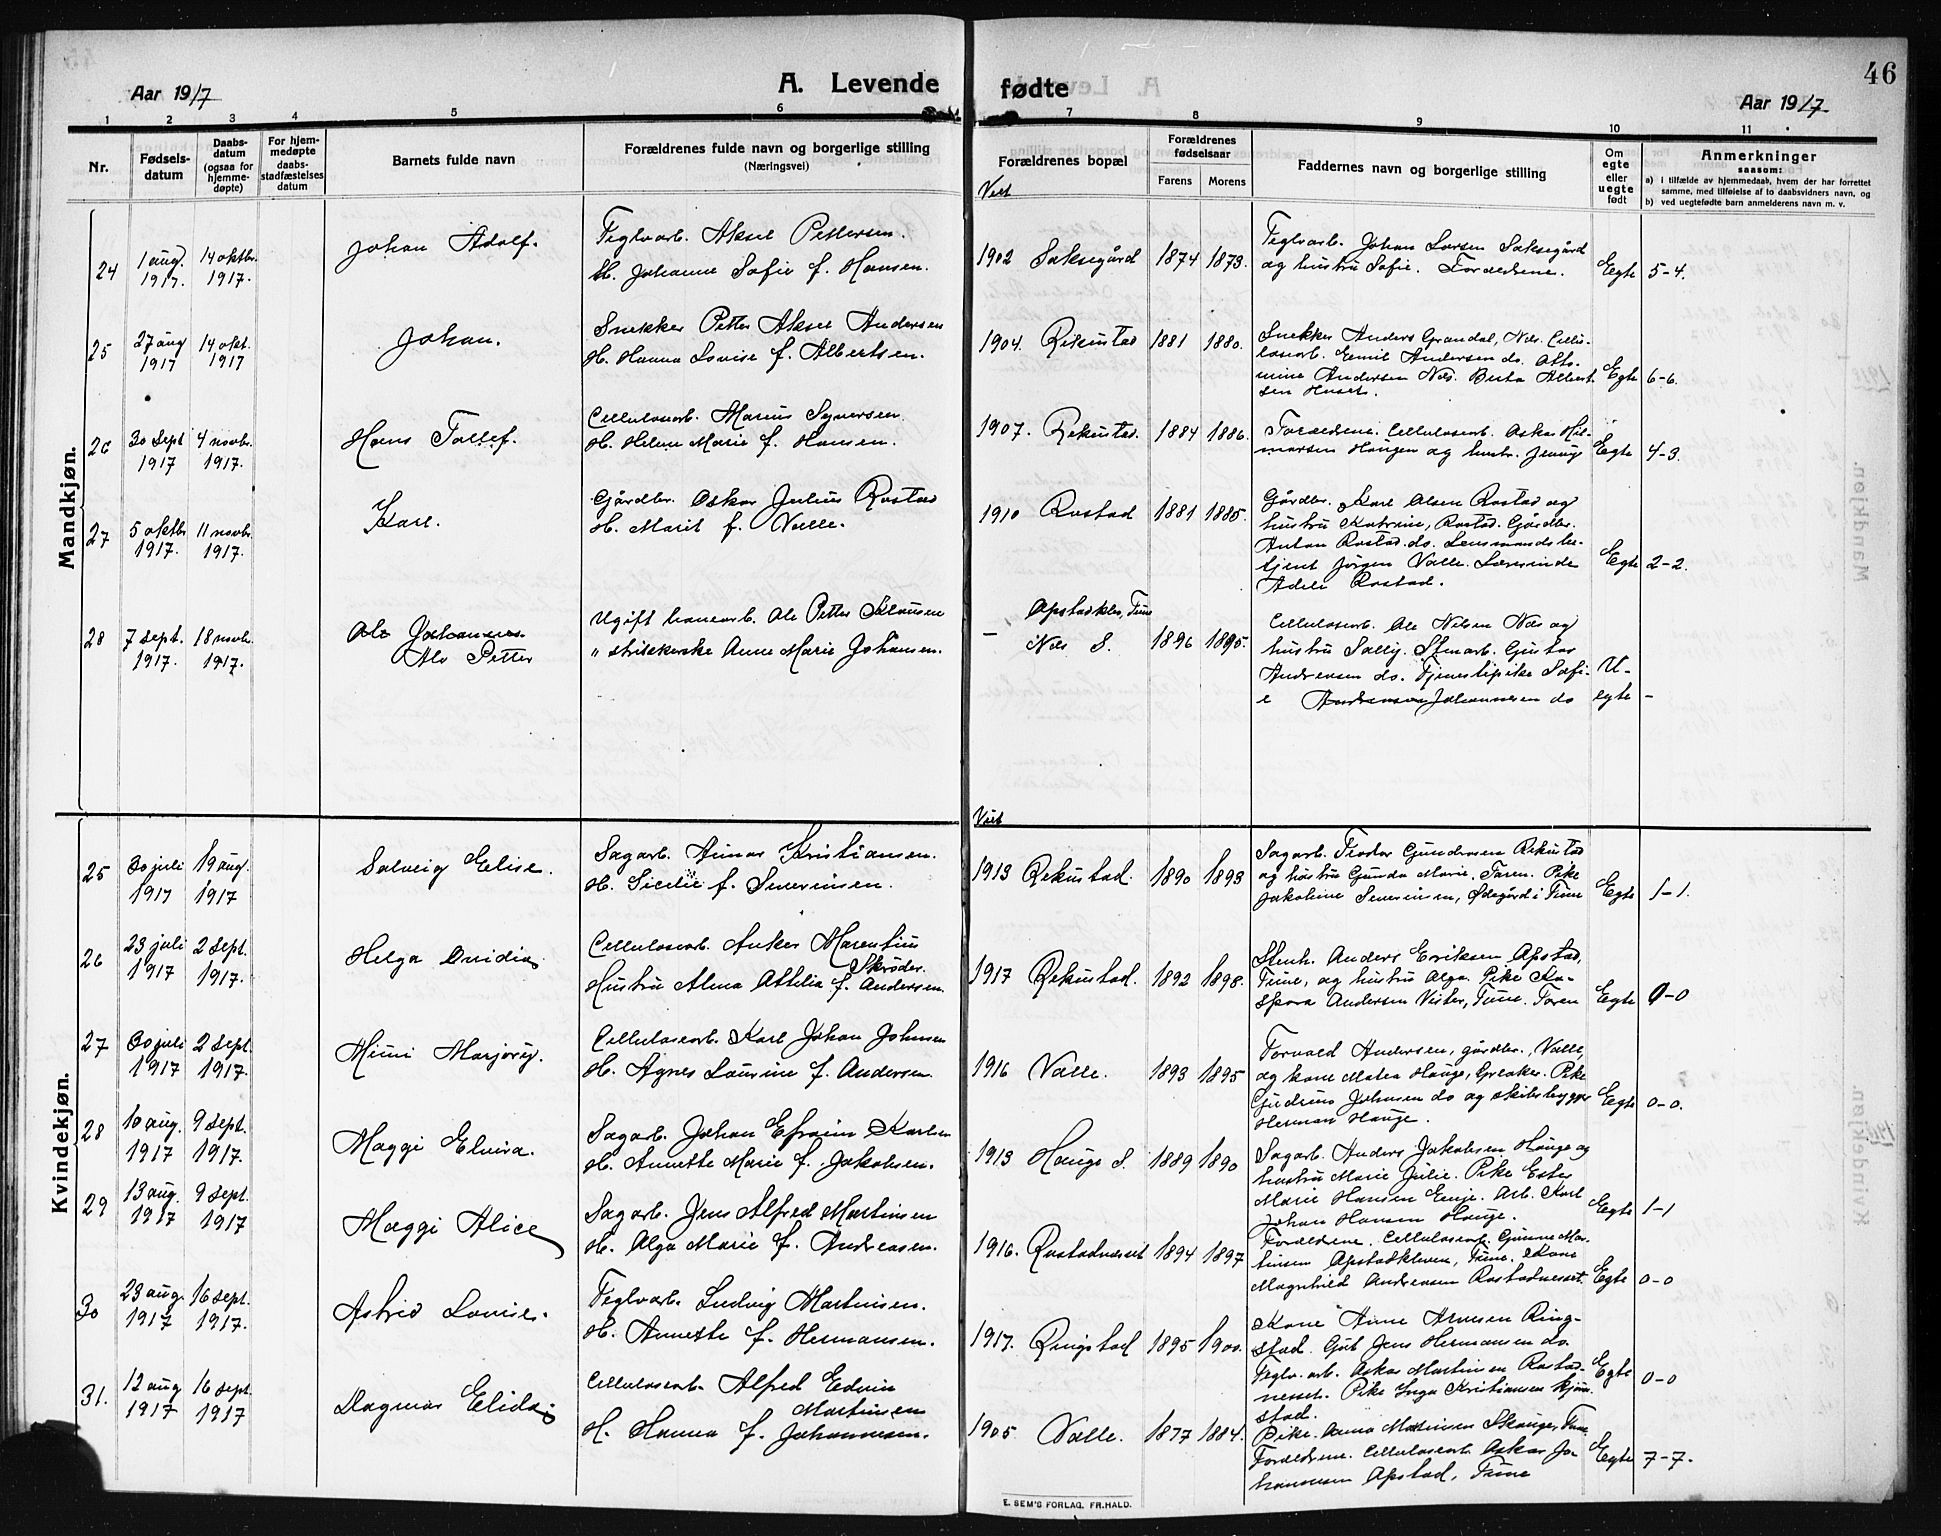 46
Aar 1917
A. Levende fødte
Aar 1917
1 2 3 4 5 6 7 8 9 10 11
Nr.
Fødsels-
datum
Daabs-
datum
(ogsaa for
hjemme-
døpte)
For hjem-
medøpte
daabs-
stadfæstelses
datum
Barnets fulde navn
Forældrenes fulde navn og borgerlige stilling
(Næringsvei)
Forældrenes bopæl
Forældrenes
fødselsaar
Farens Morens
Faddernes navn og borgerlige stilling
Om
egte
eller
uegte
født
Anmerkninger
saasom:
a) i tilfælde av hjemmedaab, hvem der har forrettet
samme, med tilføielse af to daabsvidners navn, og
b) ved uegtefødte barn anmelderens navn m. v.
Viet
Mandkjøn.
24
1 aug.
1917.
14 oktbr.
1917.
Johan Adolf.
Teglvarb. Aksel Pettersen.
H. Johanne Sofie f. Hansen.
1902 Saksegård 1874 1873.
Teglvarb. Johan Larsen Saksegård
og hustru Sofie. Forældrene.
Egte 5-4.
25
27 aug
1917
14 okt.
1917
Johan.
Snekker Petter Aksel Andersen
H. Hanna Lovise f. Albertsen.
1904. Rekustad 1881 1880.
Snekker Anders Grøndal, Nes. Cellu-
losearb. Emil Andersen do. Otto-
mine Andersen Nes. Berta Albert-
sen Huset.
Egte 6-6.
26
30 sept
1917
4 novbr.
1917.
Hans Tollef.
Cellulosearb. Marius Syversen.
H. Helene Marie f. Hansen.
1907. Rekustad. 1884 1886.
Forældrene. Cellulosearb. Oskar Hil-
marsen Haugen og hustr. Jenny
Egte 4-3.
27
5 oktbr
1917.
11 novbr.
1917.
Karl.
Gårdbr. Oskar Julius Rostad
H. Marit f. Valle.
1910 Rostad 1881 1885.
Gårdbr. Karl Olsen Rostad og
hustru Katrine, Rostad. Gårdbr.
Anton Rostad do. Lensmandsbe-
tjent Jørgen Valle. Lærerinde
Adele Rostad.
Egte 2-2.
28
7 sept.
1917.
18 novbr.
1917.
Ole Johannes
Alv Petter
Ugift havnearb. Ole Petter Klausen
" strikkerske Anne Marie Johansen.
- Opstadklev, Tune
Nes S. 1896 1895.
Cellulosearb. Ole Nilsen Nes og
hustru Sally. Stenarb. Gustav
Andreasen do. Tjenestepike Sofi-
e Andreasen Johannesen do
U-
egte -
Viet
Kvindekjøn.
25
30 juli
1917
19 aug.
1917
Solveig Elise.
Sagarb. Einar Kristiansen.
H. Sicilie f. Severinsen.
1913 Rekustad. 1890 1893
Sagarb. Teodor Gundersen Rekustad
og hustru Gunda Marie. Faren. Pike
Jakobine Severinsen, Ødegård i Tune
Egte 1-1.
26
23 juli
1917
2 sept.
1917.
Helga Ovidia
Cellulosearb. Anker Marentius
Skrøder.
Hustru Alma Attilia f. Andersen.
1917 Rekustad. 1892 1898.
Stenh. Anders Eriksen Opstad,
Tune, og hustru Olga. Pike Ka-
spara Andersen Vister, Tune. Faren
Egte 0-0
27
30 juli
1917
2 sept.
1917.
Mimi Marjory.
Cellulosearb. Karl Johan Johnsen
H. Agnes Laurine f. Andersen.
1916 Valle. 1893 1895
Torvald Andersen, gårdbr., Valle,
og kone Matea Hauge, Greåker. Pike
Gudrun Johnsen do og skibsbygger
Herman Hauge.
Egte 0-0.
28
10 aug.
1917
9 sept.
1917.
Maggi Elvira.
Sagarb. Johan Efraim Karlsen
H. Annette Marie f. Jakobsen.
1913 Hauge S. 1889 1890
Sagarb. Anders Jakobsen Hauge og
hustru Marie Julie. Pike Ester
Marie Hansen Enge. Arb. Karl
Johan Hansen Hauge.
Egte 1-1
29
13 aug.
1917
9 sept.
1917
Maggi Alice
Sagarb. Jens Alfred Martinsen
H. Olga Marie f. Andreasen.
1916. Rostadnesset 1894 1897
Forældrene. Cellulosearb. Gunne Mar-
tinsen Opstadkleven, Tune. Kone
Magnhild Andreasen Rostadnesset.
Egte 0-0
30
23 aug.
1917
16 sept.
1917.
Astrid Lovise.
Teglvarb. Ludvig Martinsen.
H. Annette f. Hermansen.
1917. Ringstad 1895 1900.
Kone Anne Arnesen Ring-
stad. Gut Jens Hermansen do.
Teglv. arb. Oskar Martinsen Rostad-
nesset. Pike Inga Kristiansen Kjøn-
stad.
Egte 0-0
31.
12 aug
1917
16 sept.
1917
Dagmar Elida
Cellulosearb. Alfred Edvin
Martinsen
H. Hanna f. Johannesen.
1905 Valle. 1877 1884.
Pike. Anna Martinsen Skauge, Tune
Forældrene. Cellulosearb. Oskar Jo-
hannesen Opstad, Tune
Egte 7-7.
E. SEM'S FORLAG. FR.HALD.